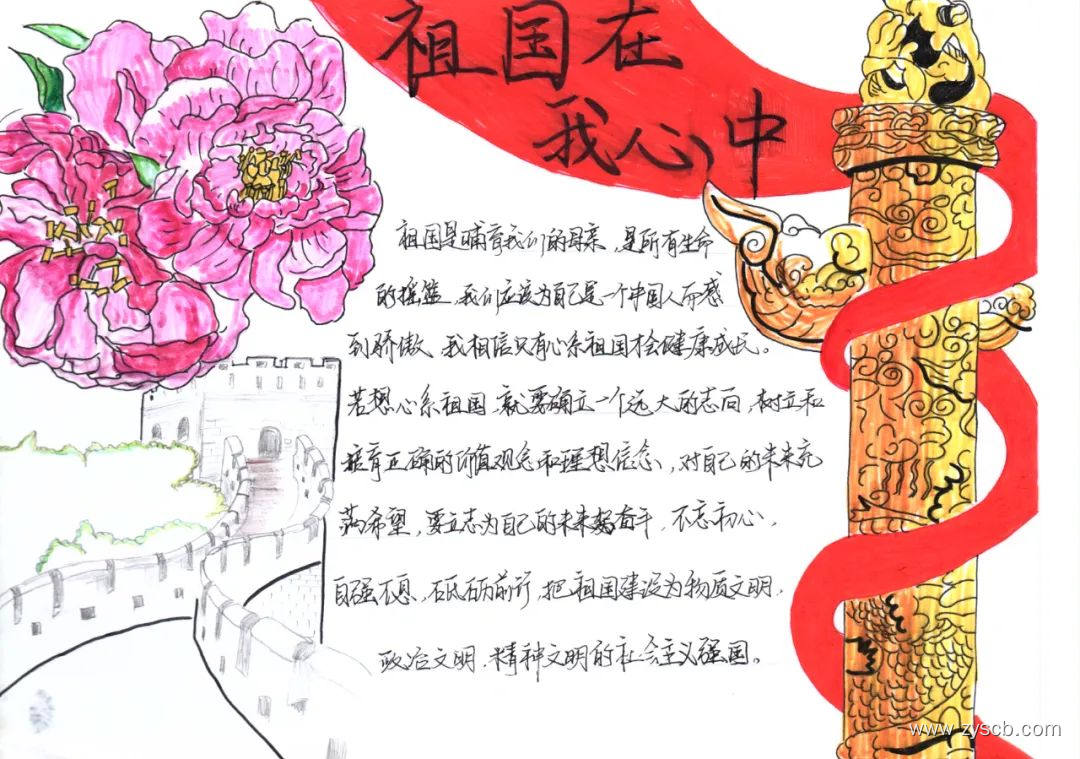 祖国在
我心中
祖国是哺育我们的母亲，是所有生命
的摇篮，我们应该为自己是一个中国人而感
到骄傲。我相信只有心系祖国才会健康成长。
若想心系祖国，就要确立一个远大的志向，树立和
培育正确的价值观念和理想信念，对自己的未来充
满希望，要立志为自己的未来努奋斗，不忘初心，
自强不息，砥砺前行，把祖国建设为物质文明，
政治文明，精神文明的社会主义强国。
www.zyscb.com